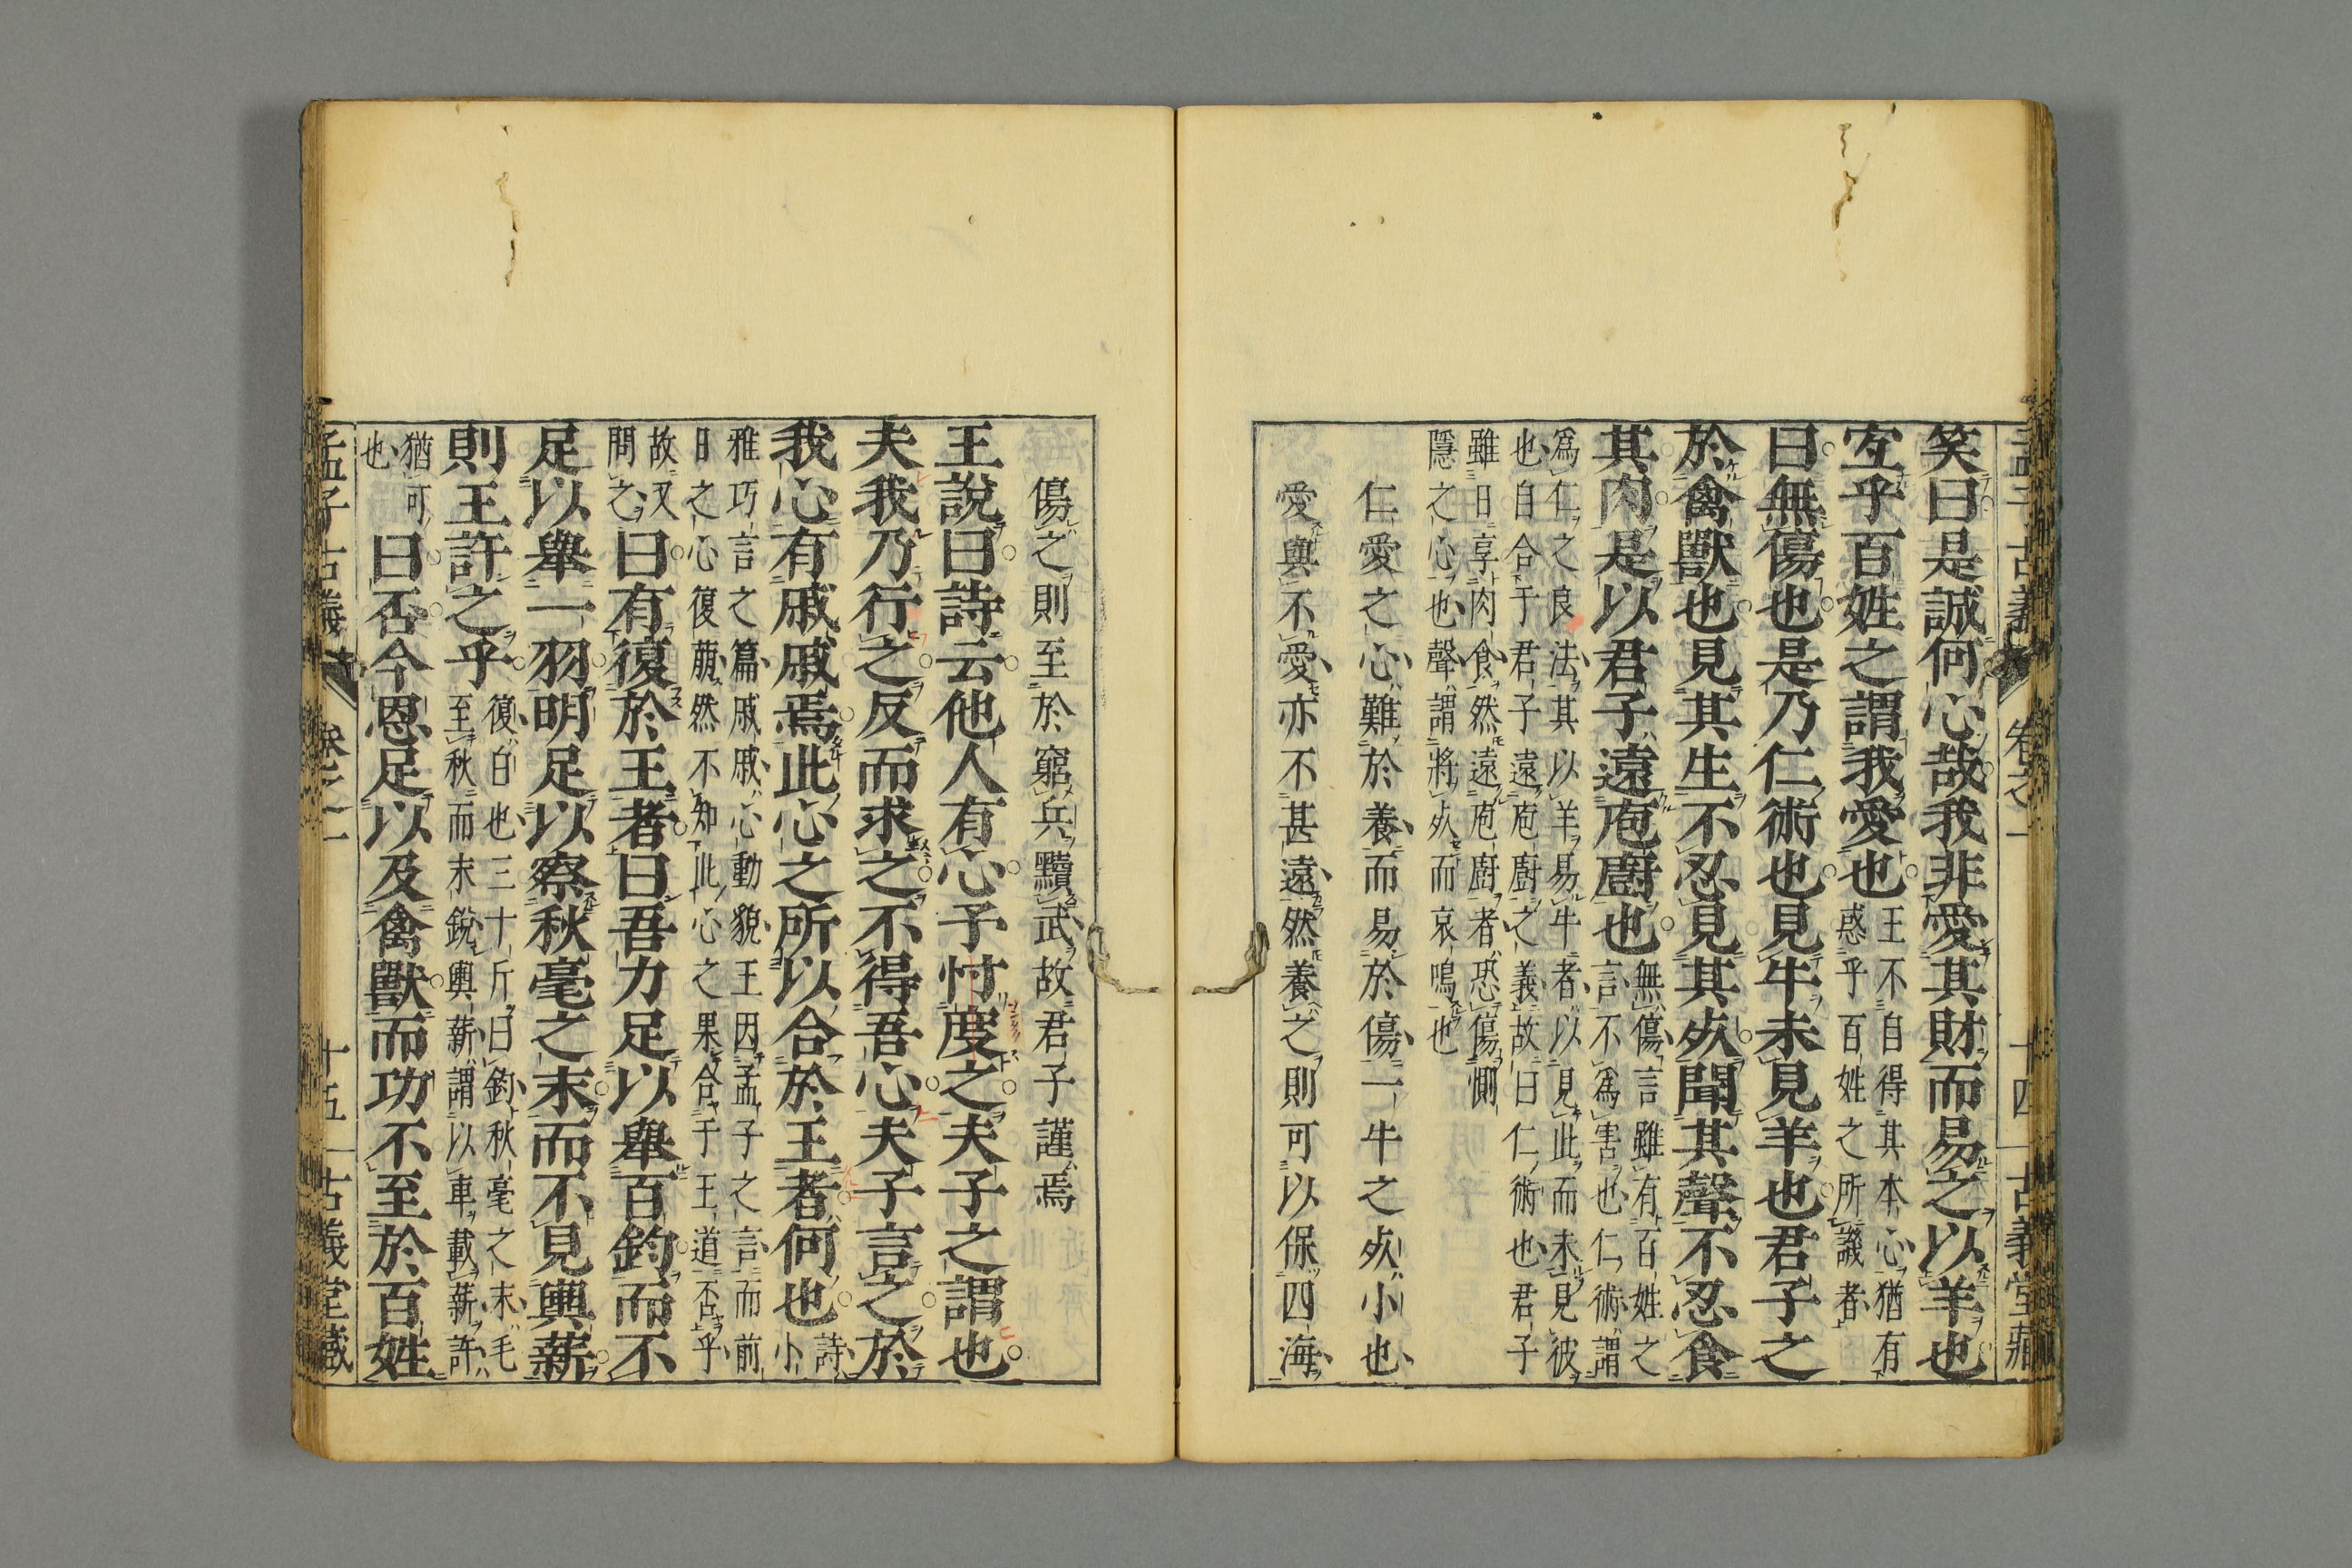 孟子古義 卷之一 十四 古義堂藏
笑曰是誠何心哉我非愛其財而易之以羊也
宐乎百姓之謂我愛也王不自得其本心猶有
惑乎百姓之所譏者
曰無傷也是乃仁術也見牛未見羊也君子之
於禽獸也見其生不忍見其死聞其聲不忍食
其肉是以君子遠庖廚也無傷言雖有百姓之
言不爲害也仁術謂
爲仁之良法其以羊易牛者以見此而未見彼
也自合于君子遠庖廚之義故曰仁術也君子
雖日享肉食然遠庖廚者恐傷惻
隱之心也聲謂將死而哀鳴也
仁愛之心難於養而易於傷一牛之死小也
愛與不愛亦不甚遠然養之則可以保四海
傷之則至於窮兵黷武故君子謹焉
王說曰詩云他人有心予忖度之夫子之謂也
夫我乃行之反而求之不得吾心夫子言之於
我心有戚戚焉此心之所以合於王者何也詩
小
雅巧言之篇戚戚心動貌王因孟子之言而前
日之心復萠然不知此心之果合于王道否乎
故又
問之曰有復於王者曰吾力足以舉百鈞而不
足以舉一羽明足以察秋毫之末而不見輿薪
則王許之乎復白也三十斤曰鈞秋毫之末毛
至秋而末銳輿薪謂以車載薪許
猶可
也曰否今恩足以及禽獸而功不至於百姓
孟子古義 卷之一 十五 古義堂藏